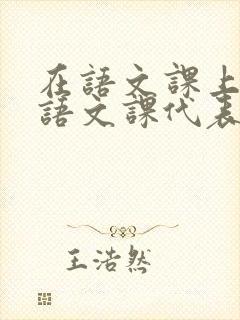 在語文課上
語文課代表
王浩然